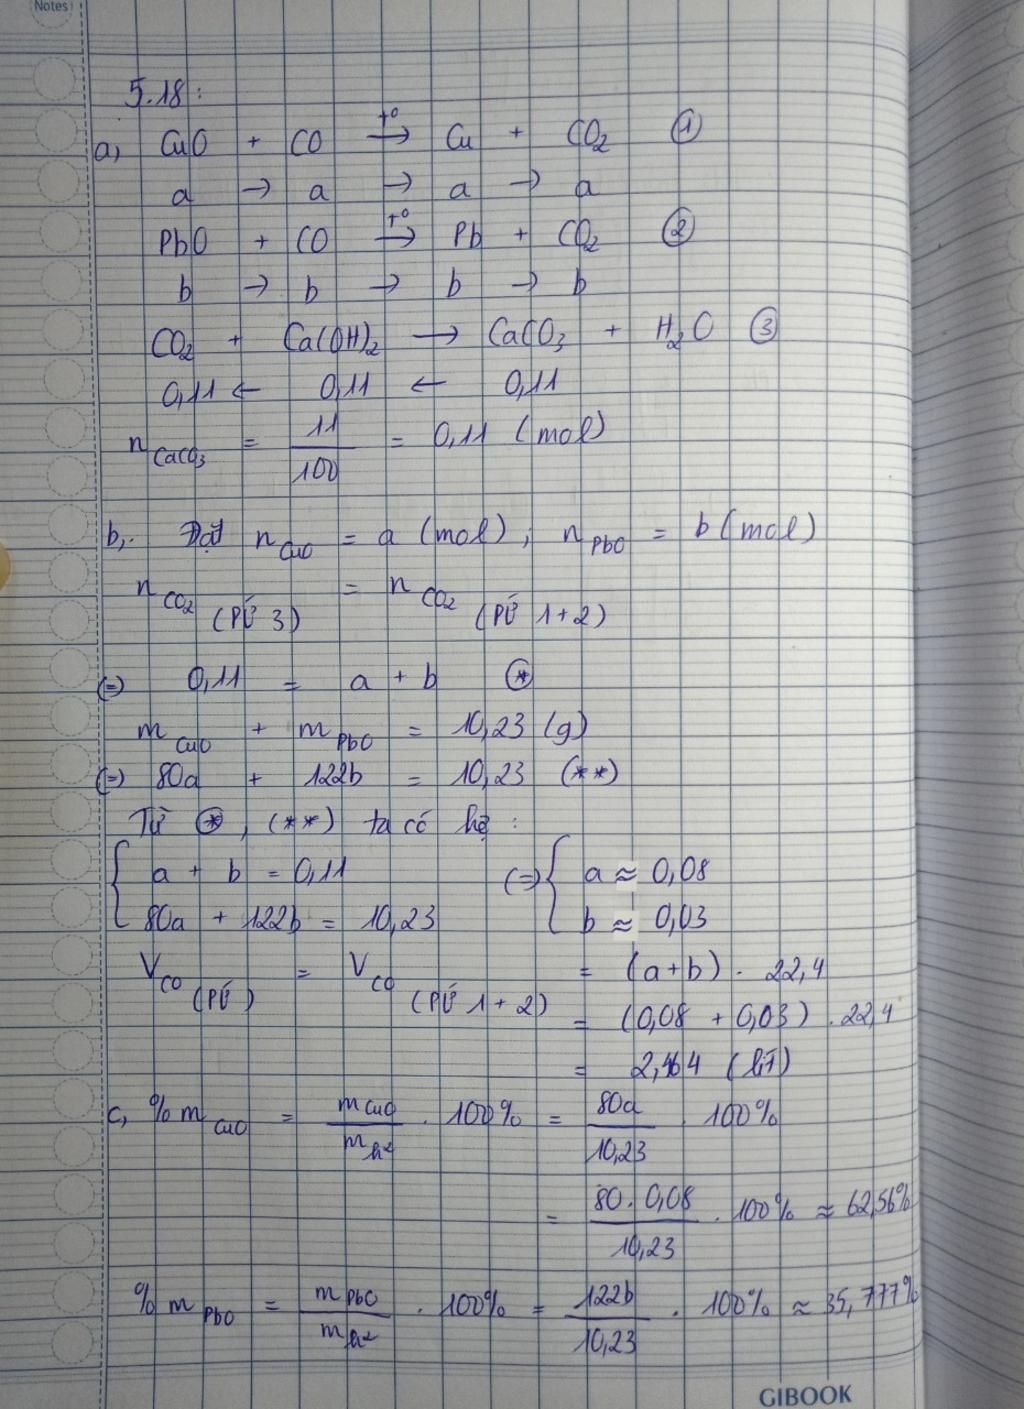 Notes
5.18:
a, CuO + CO →(t°) Cu + CO₂ ①
a → a → a → a
PbO + CO →(t°) Pb + CO₂ ②
b → b → b → b
CO₂ + Ca(OH)₂ → CaCO₃ + H₂O ③
0,11 ← 0,11 ← 0,11
n CaCO₃ = 11/100 = 0,11 (mol)
b, Đặt n CuO = a (mol), n PbO = b (mol)
n CO₂ (PỨ 3) = n CO₂ (PỨ 1+2)
(=) 0,11 = a + b (*)
m CuO + m PbO = 10,23 (g)
(=) 80a + 122b = 10,23 (**)
Từ (*), (**) ta có hệ:
{ a + b = 0,11 (=) { a ≈ 0,08
80a + 122b = 10,23 b ≈ 0,03
V CO (PỨ) = V CO (PỨ 1+2) = (a+b) . 22,4
= (0,08 + 0,03) . 22,4
= 2,464 (lít)
c, % m CuO = m CuO / m h² . 100% = 80a / 10,23 . 100%
= 80.0,08 / 10,23 . 100% ≈ 62,56%
% m PbO = m PbO / m h² . 100% = 122b / 10,23 . 100% ≈ 35,777%
GIBOOK